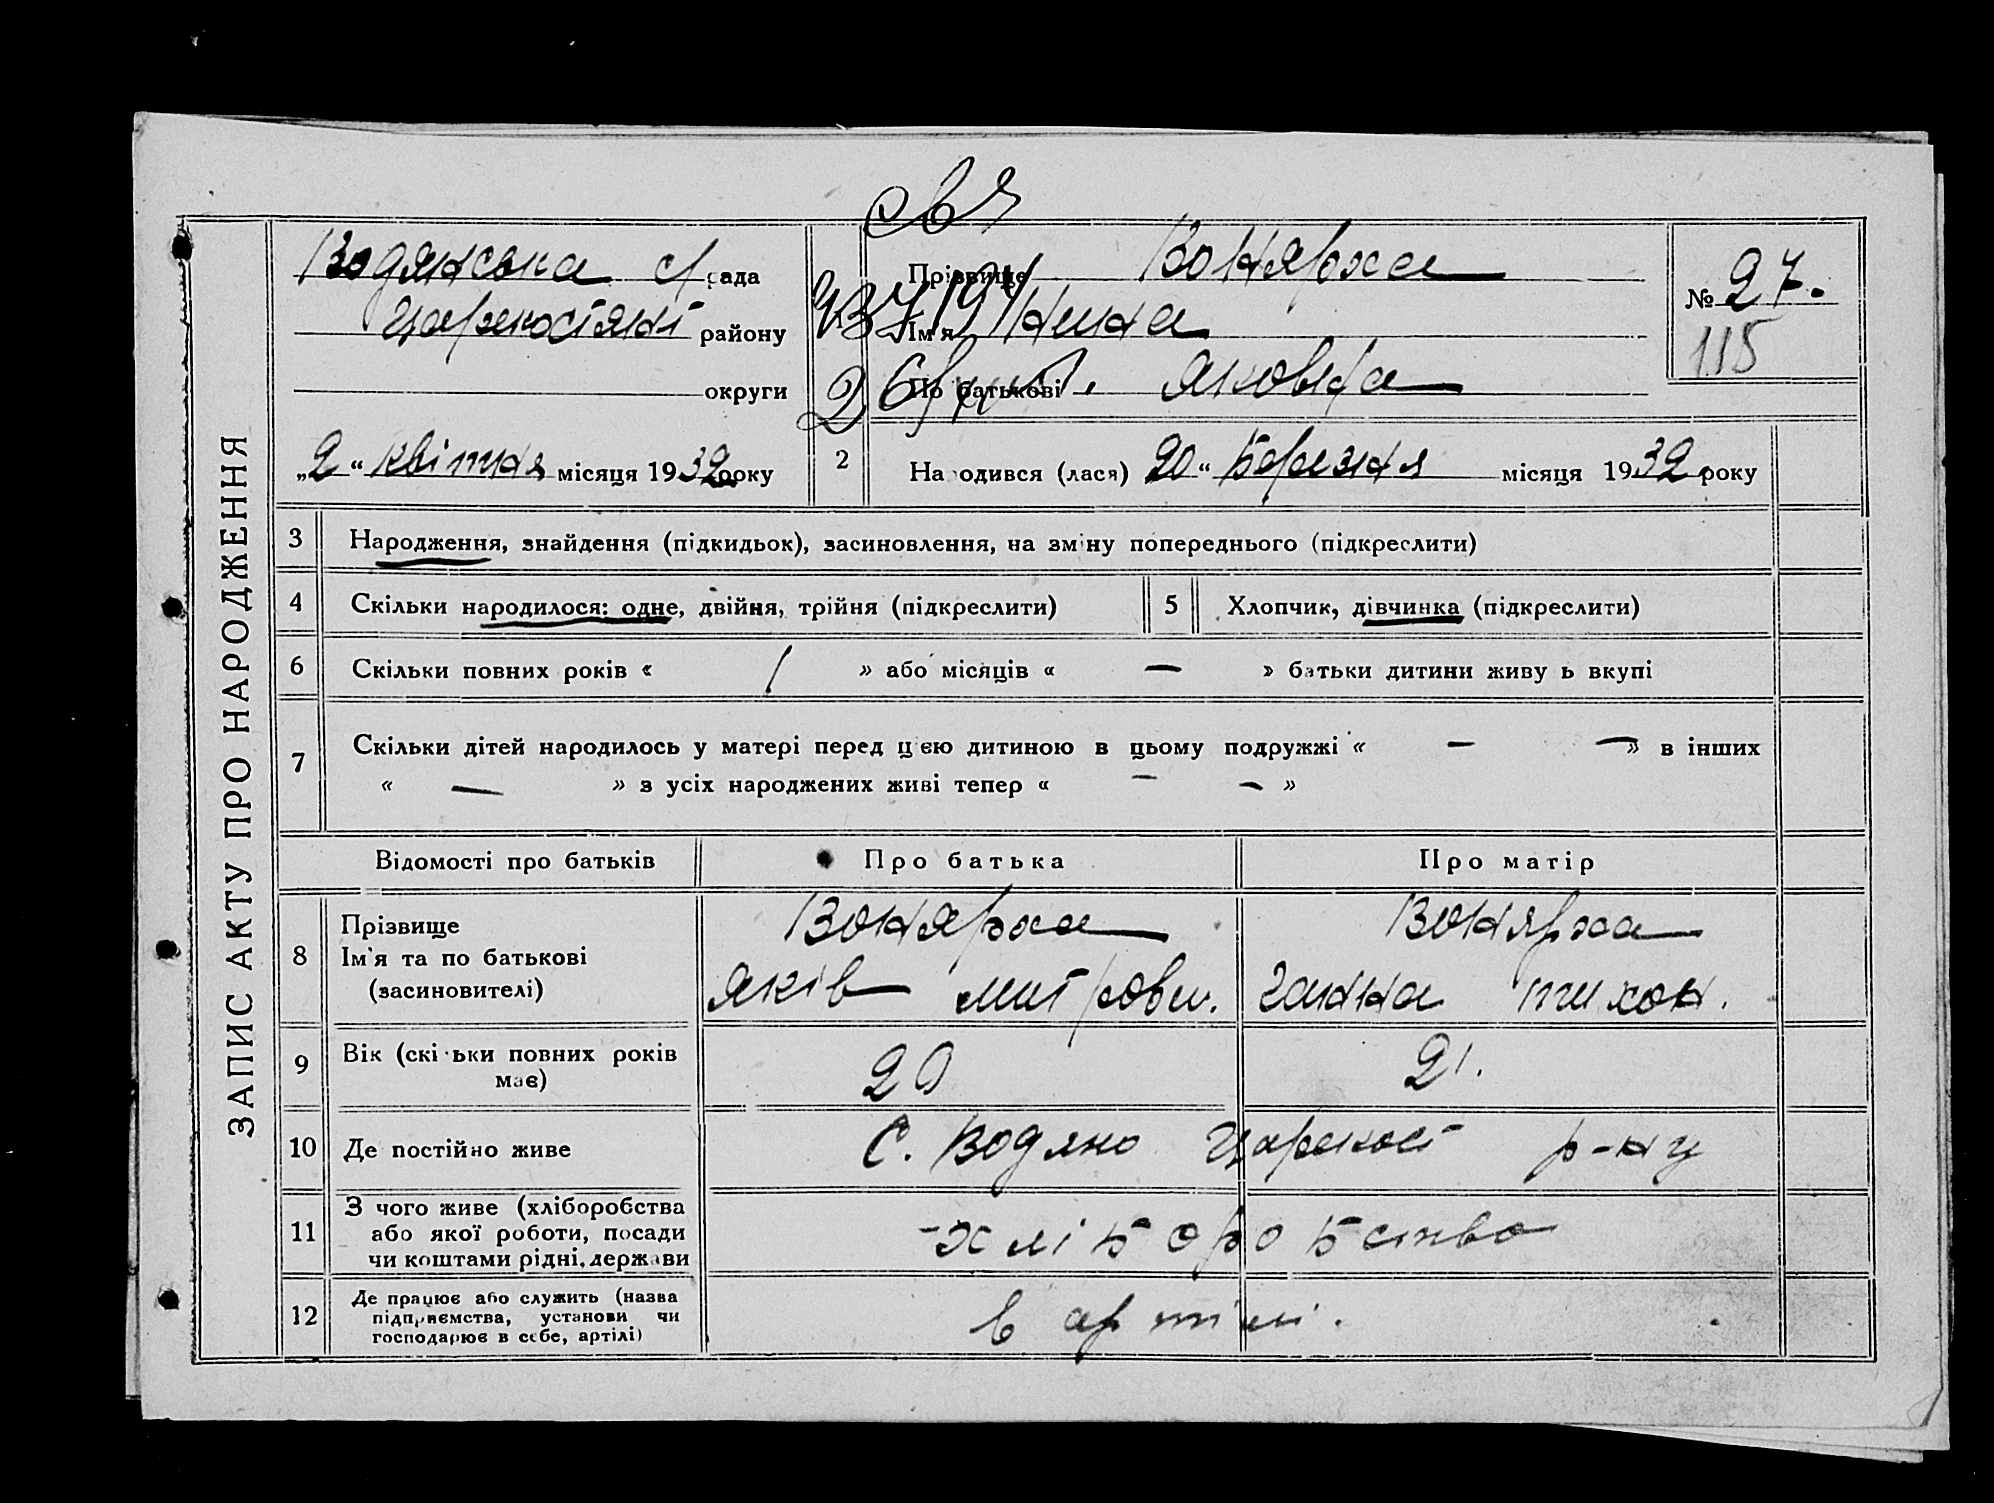 ЗАПИС АКТУ ПРО НАРОДЖЕННЯ
Водянська с/рада
району
округи
„2“ квітня місяця 1932 року
Прізвище Вонярха
Ім'я Нина
По батькові Яковна
№ 27.
115
2 Народився (лася) 20 “ Березня місяця 1932 року
3 Народження, знайдення (підкидьок), засиновлення, на зміну попереднього (підкреслити)
4 Скільки народилося: одне, двійня, трійня (підкреслити)
5 Хлопчик, дівчинка (підкреслити)
6 Скільки повних років « 1 » або місяців « — » батьки дитини живуть вкупі
7 Скільки дітей народилось у матері перед цією дитиною в цьому подружжі « — — » в інших
« — » з усіх народжених живі тепер « — — »
Відомості про батьків Про батька Про матір
8 Прізвище Ім'я та по батькові (засиновителі)
Вонярха Вонярха
Яків Митрови. Ганна Тихон.
9 Вік (скільки повних років має) 20 21.
10 Де постійно живе С. Водяно Царекост р-ну
11 З чого живе (хліборобства
або якої роботи, посади
чи коштами рідні, держави
-хліборобство
12 Де працює або служить (назва
підприємства, установи чи
господарює в себе, артілі)
в артілі.